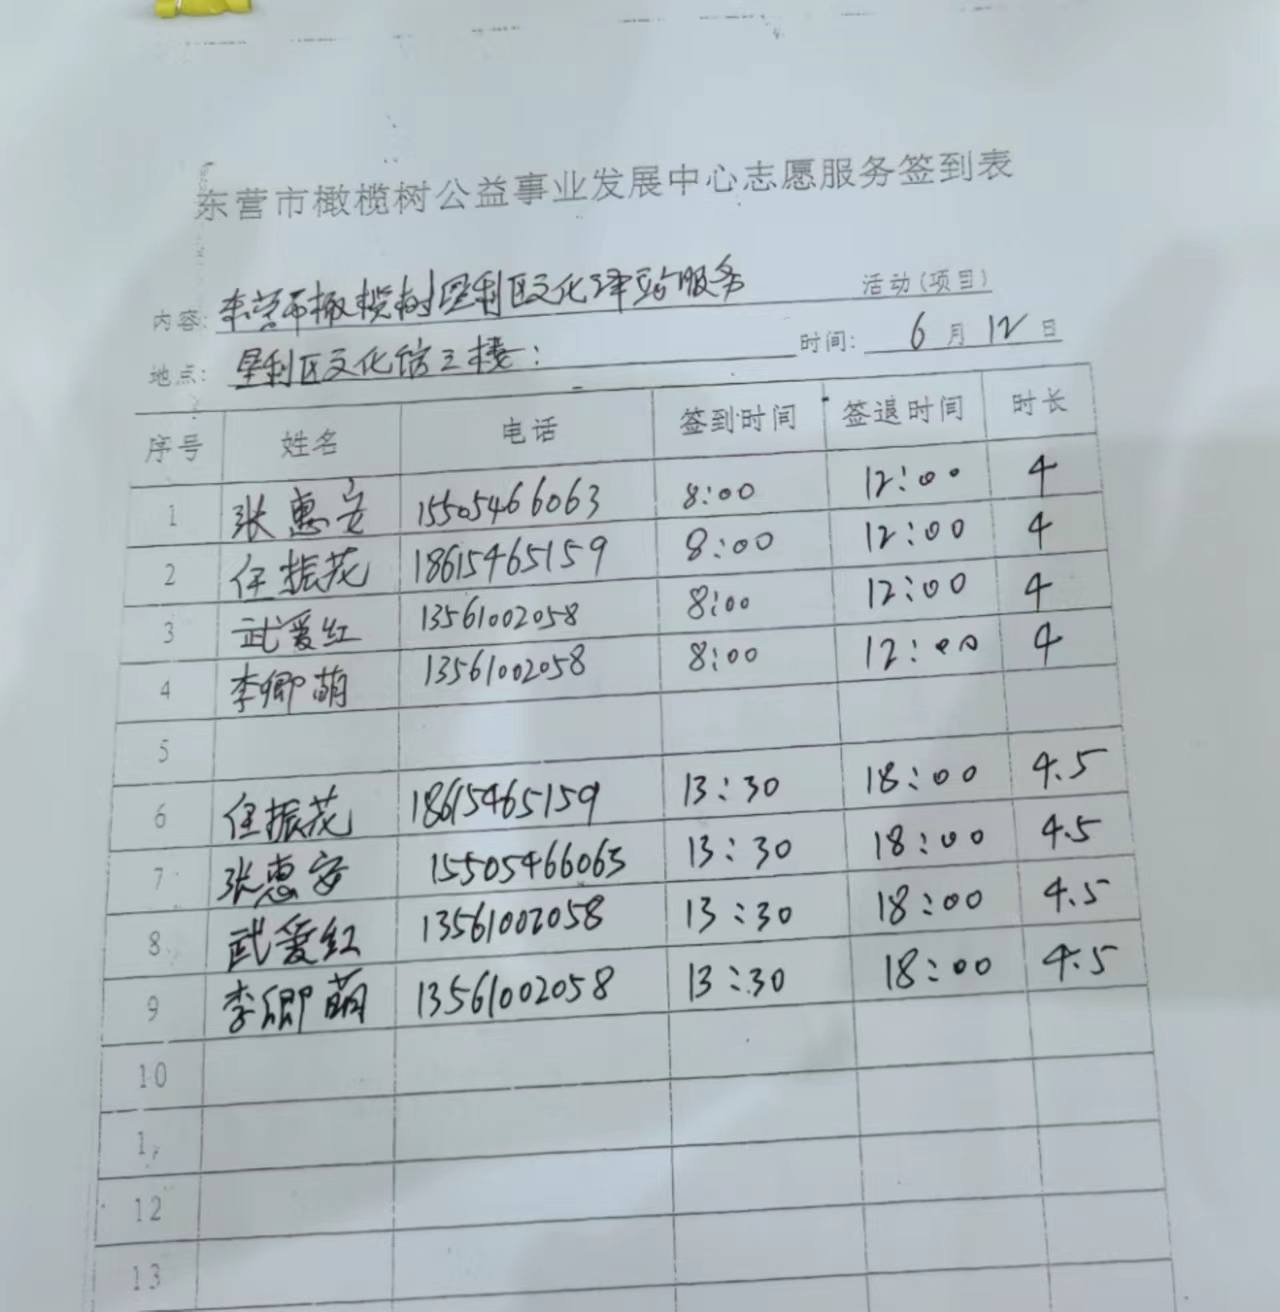 东营市橄榄树公益事业发展中心志愿服务签到表
内容: 东营市橄榄树垦利区文化驿站服务 活动(项目)
地点: 垦利区文化馆三楼: 时间: 6月12日
序号 姓名 电话 签到时间 签退时间 时长
1 张惠安 15505466063 8:00 12:00 4
2 任振花 18615465159 8:00 12:00 4
3 武爱红 13561002058 8:00 12:00 4
4 李卿萌 13561002058 8:00 12:00 4
5
6 任振花 18615465159 13:30 18:00 4.5
7 张惠安 15505466063 13:30 18:00 4.5
8 武爱红 13561002058 13:30 18:00 4.5
9 李卿萌 13561002058 13:30 18:00 4.5
10
12
13